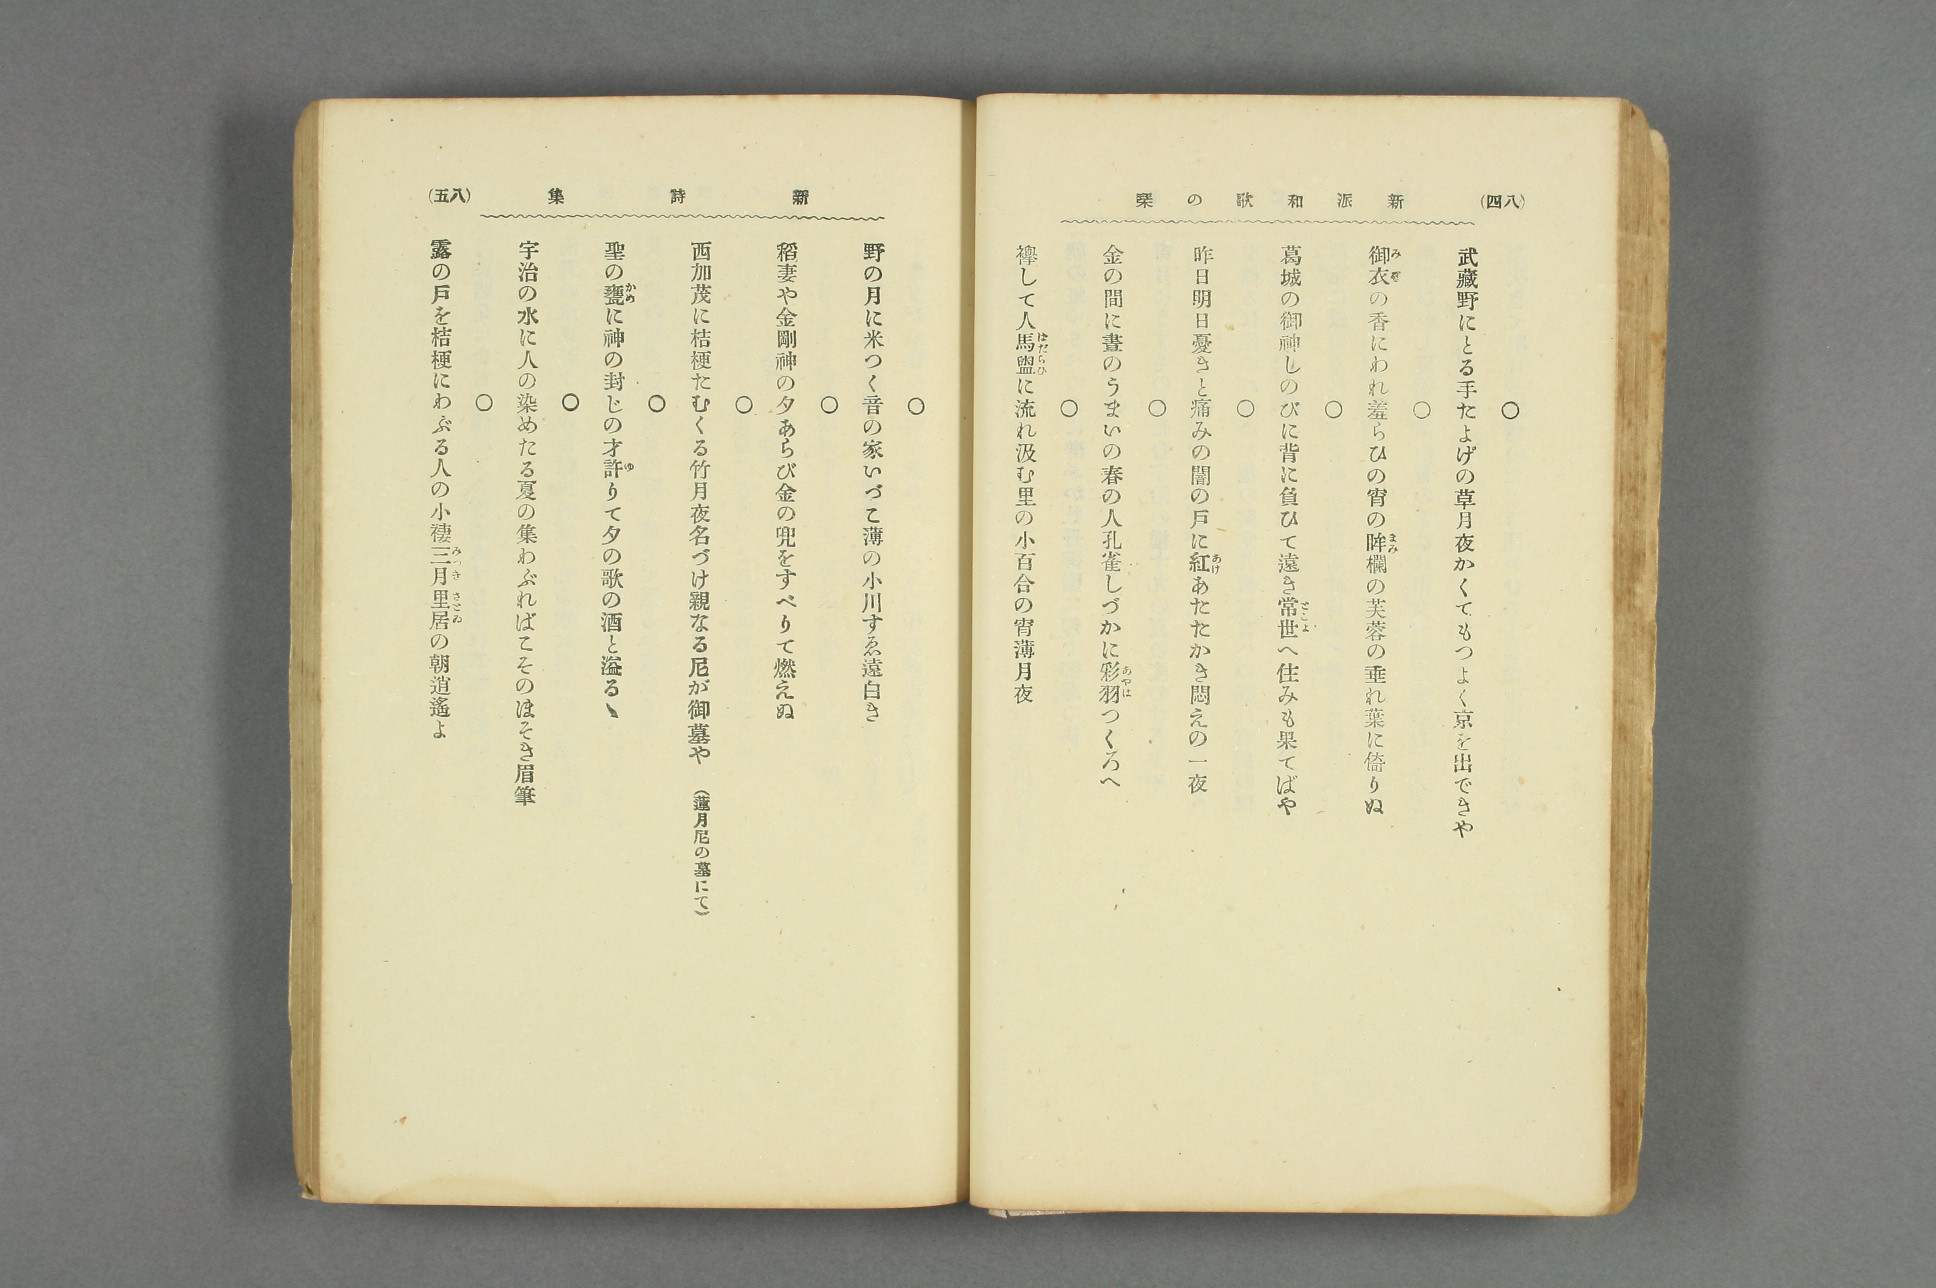 (八四)
新派和歌の栞
○
武藏野にとる手たよげの草月夜かくてもつよく京を出できや
○
御衣の香にわれ羞らひの宵の眸欄の芙蓉の垂れ葉に倚りぬ
○
葛城の御神しのびに背に負ひて遠き常世へ住みも果てばや
○
昨日明日憂きと痛みの闇の戸に紅あたたかき悶えの一夜
○
金の間に晝のうまいの春の人孔雀しづかに彩羽つくろへ
○
襷して人馬盥に流れ汲む里の小百合の宵薄月夜
新詩集
(八五)
○
野の月に米つく音の家いづこ薄の小川すゑ遠白き
○
稻妻や金剛神の夕あらび金の兜をすべりて燃えぬ
○
西加茂に桔梗たむくる竹月夜名づけ親なる尼が御墓や (蓮月尼の墓にて)
○
聖の甕に神の封じの才許りて夕の歌の酒と溢るゝ
○
宇治の水に人の染めたる夏の集わぶればこそのほそき眉筆
○
露の戸を桔梗にわぶる人の小褄三月里居の朝逍遙よ